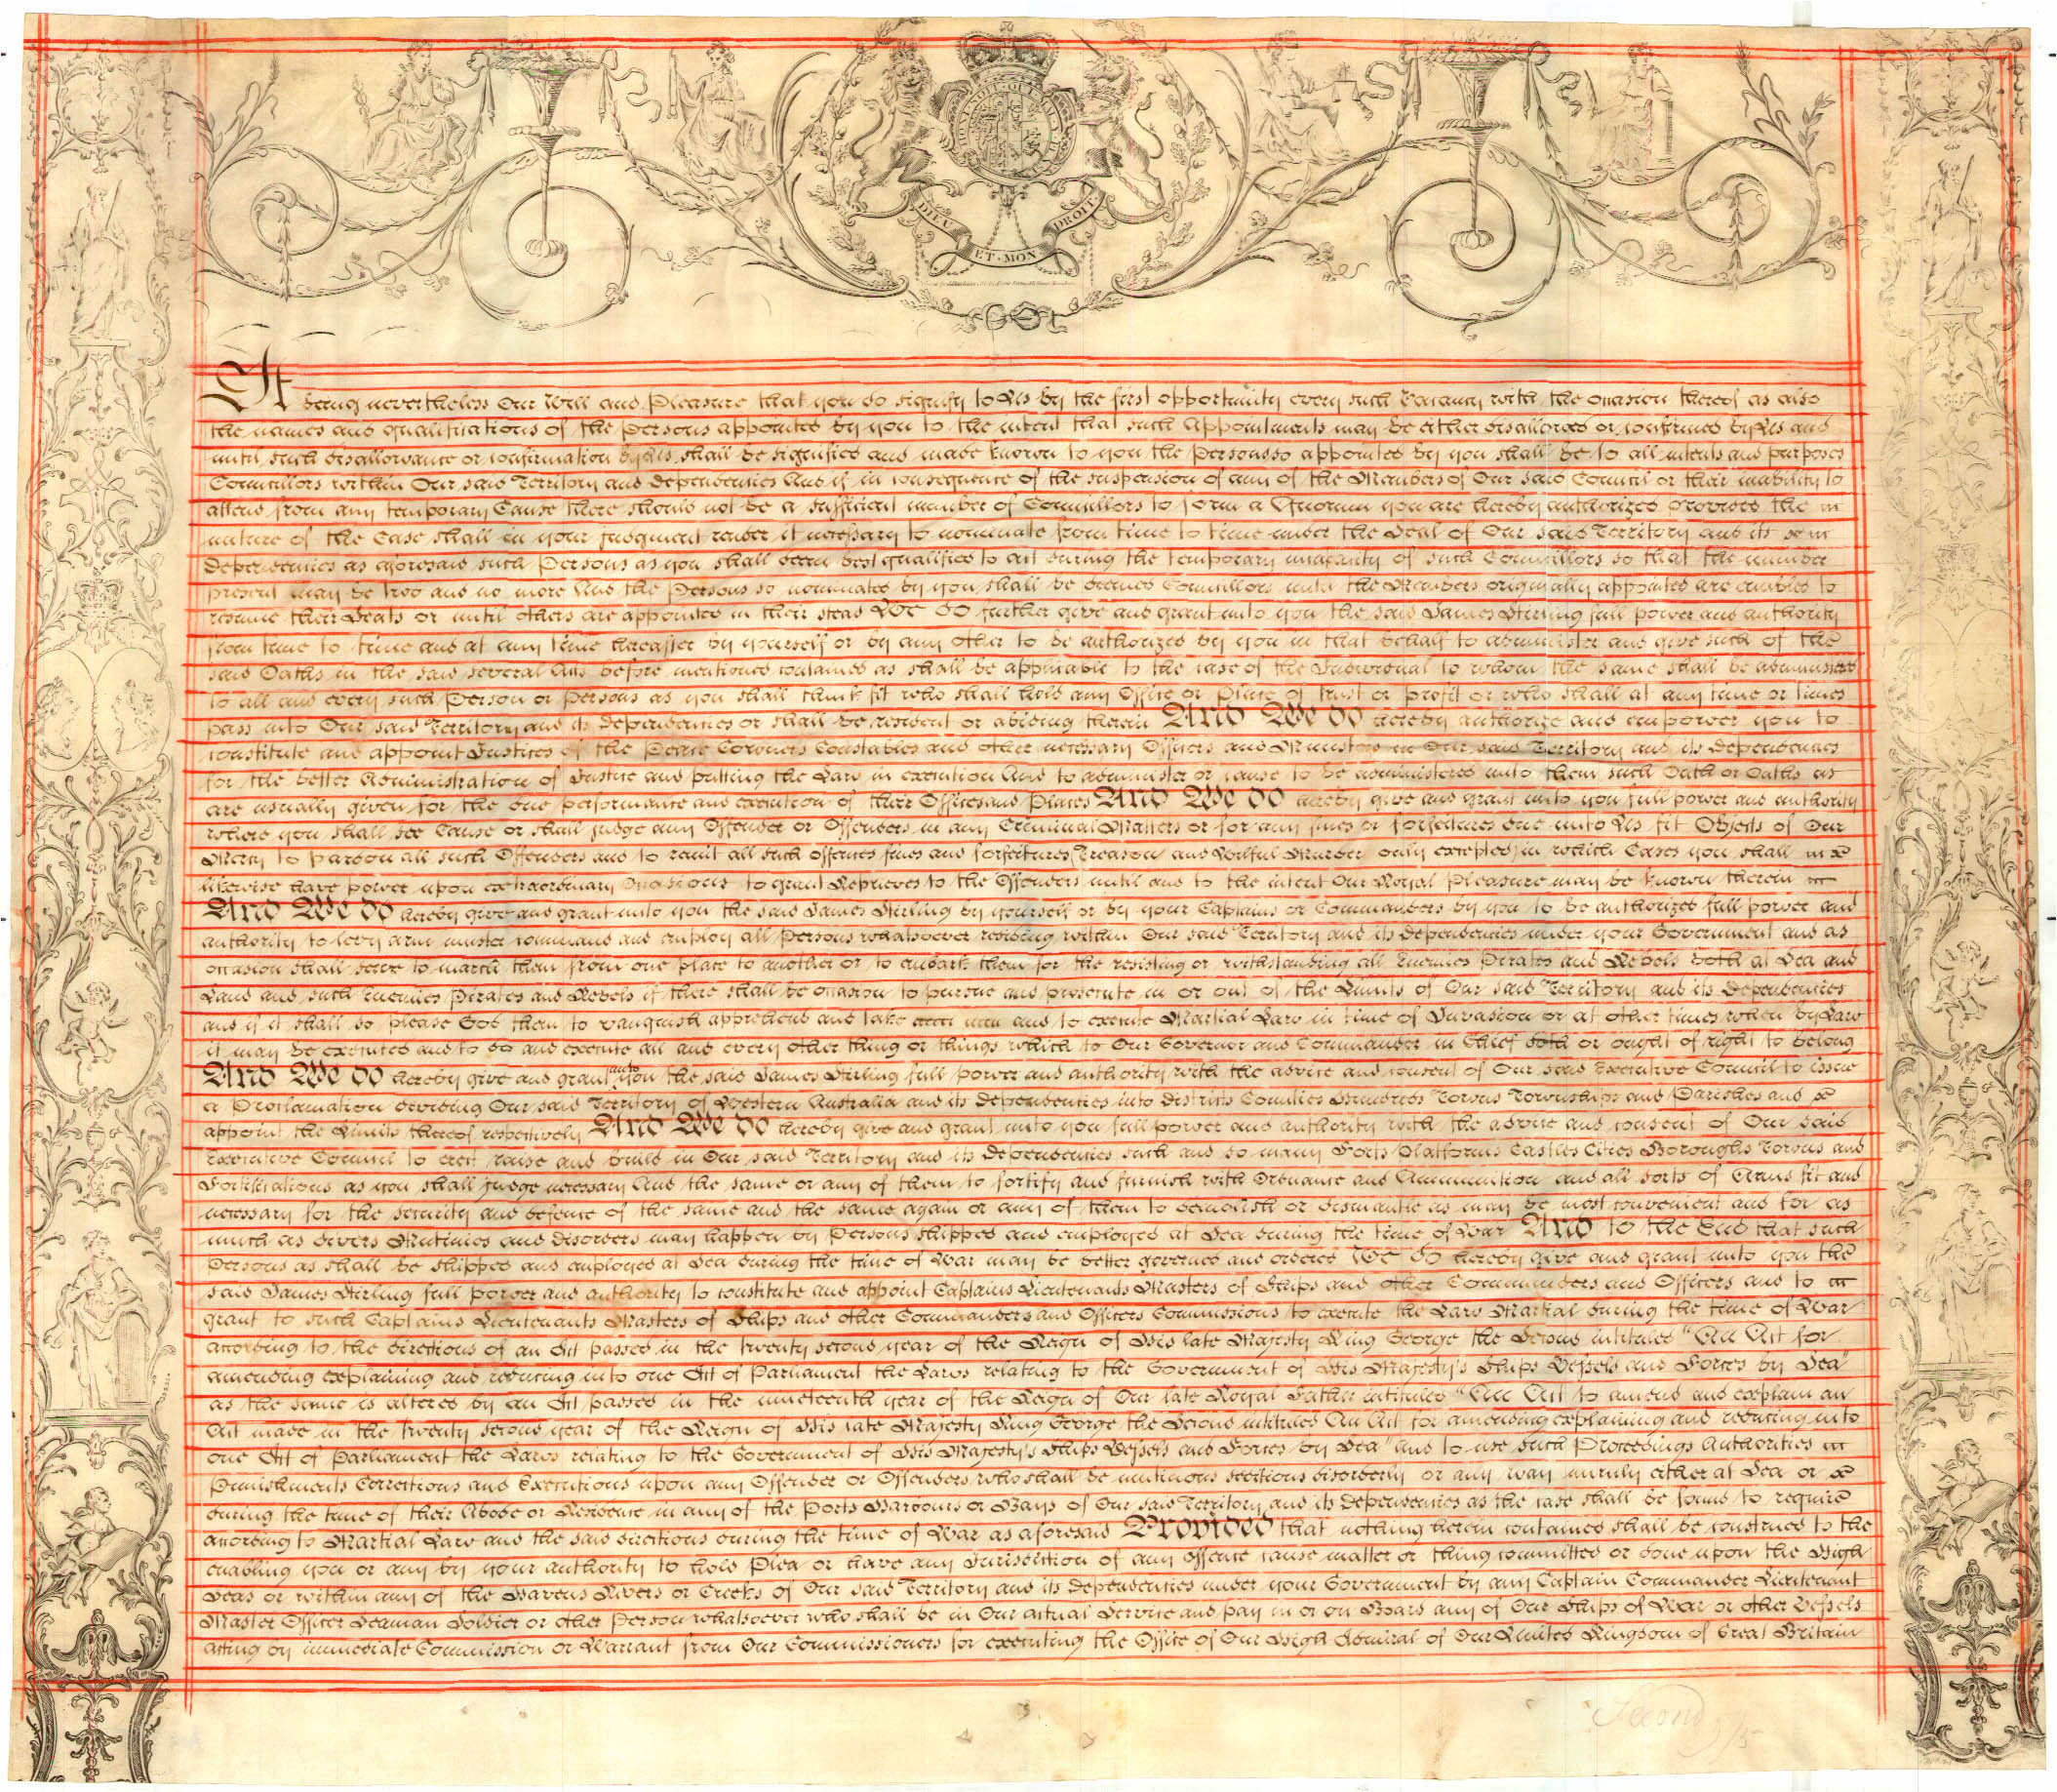 HONI·SOIT·QUI·MAL·Y·PENSE
DIEU ET·MON DROIT·
It being nevertheless Our Will and Pleasure that you do signify to Us by the first opportunity every such Vacancy with the occasion thereof as also
the names and qualifications of the Persons appointed by you to the intent that such Appointments may be either disallowed or confirmed by Us and
until such disallowance or confirmation by Us shall be signified and made known to you the Persons so appointed by you shall be to all intents and purposes
Councillors within Our said Territory and dependencies And if in consequence of the suspension of any of the Members of Our said Council or their inability to
attend from any temporary Cause there should not be a sufficient number of Councillors to form a Quorum you are hereby authorized provided the
nature of the Case shall in your judgment render it necessary to nominate from time to time under the Seal of Our said Territory and its
dependencies as aforesaid such Persons as you shall deem best qualified to act during the temporary incapacity of such Councillors so that the number
present may be two and no more And the Persons so nominated by you shall be deemed Councillors until the Members originally appointed are enabled to
resume their Seats or until others are appointed in their stead We do further give and grant unto you the said James Stirling full power and authority
from time to time and at any time hereafter by yourself or by any other to be authorized by you in that behalf to administer and give such of the
said Oaths in the said several Acts before mentioned contained as shall be applicable to the case of the Individual to whom the same shall be administered
to all and every such Person or Persons as you shall think fit who shall hold any Office or Place of trust or profit or who shall at any time or times
pass into Our said Territory and its dependencies or shall be resident or abiding therein And We do hereby authorize and empower you to
constitute and appoint Justices of the Peace Coroners Constables and other necessary Officers and Ministers in Our said Territory and its dependencies
for the better Administration of Justice and putting the Law in execution And to administer or cause to be administered unto them such Oath or Oaths as
are usually given for the due performance and execution of their Offices and Places And We do hereby give and grant unto you full power and authority
where you shall see Cause or shall judge any Offender or Offenders in any Criminal Matters or for any fines or forfeitures due unto Us fit Objects of Our
Mercy to pardon all such Offenders and to remit all such offences fines and forfeitures (Treason and Wilful Murder only excepted) in which Cases you shall
likewise have power upon extraordinary Occasions to grant Reprieves to the Offenders until and to the intent Our Royal Pleasure may be known therein
And We do hereby give and grant unto you the said James Stirling by yourself or by your Captains or Commanders by you to be authorized full power and
authority to levy arm muster command and employ all Persons whatsoever residing within Our said Territory and its dependencies under your Government and as
occasion shall serve to march them from one place to another or to embark them for the resisting or withstanding all Enemies Pirates and Rebels both at Sea and
Land and such Enemies Pirates and Rebels if there shall be occasion to pursue and prosecute in or out of the Limits of Our said Territory and its Dependencies
and if it shall so please God them to vanquish apprehend and take and to execute Martial Law in time of Invasion or at other times when by Law
it may be executed and to do and execute all and every other thing or things which to Our Governor and Commander in Chief doth or ought of right to belong
And We do hereby give and grant unto you the said James Stirling full power and authority with the advice and consent of Our said Executive Council to issue
a Proclamation dividing Our said Territory of Western Australia and its dependencies into districts Counties Hundreds Towns Townships and Parishes and
appoint the Limits thereof respectively And We do hereby give and grant unto you full power and authority with the advice and consent of Our said
Executive Council to erect raise and build in Our said Territory and its dependencies such and so many Forts Platforms Castles Cities Boroughs Towns and
Fortifications as you shall judge necessary And the same or any of them to fortify and furnish with Ordnance and Ammunition and all sorts of Arms fit and
necessary for the security and defence of the same and the same again or any of them to demolish or dismantle as may be most convenient and for as
much as divers Mutinies and disorders may happen by Persons shipped and employed at Sea during the time of War And to the End that such
Persons as shall be shipped and employed at Sea during the time of War may be better governed and ordered We do hereby give and grant unto you the
said James Stirling full power and authority to constitute and appoint Captains Lieutenants Masters of Ships and other Commanders and Officers and to
grant to such Captains Lieutenants Masters of Ships and other Commanders and Officers Commissions to execute the Law Martial during the time of War
according to the directions of an Act passed in the twenty second year of the Reign of His late Majesty King George the Second intituled "An Act for
amending explaining and reducing into one Act of Parliament the Laws relating to the Government of His Majesty's Ships Vessels and Forces by Sea"
as the same is altered by an Act passed in the nineteenth year of the Reign of Our late Royal Father intituled "An Act to amend and explain an
Act made in the twenty second year of the Reign of His late Majesty King George the Second intituled An Act for amending explaining and reducing into
one Act of Parliament the Laws relating to the Government of His Majesty's Ships Vessels and Forces by Sea" and to use such Proceedings Authorities
Punishments Corrections and Executions upon any Offender or Offenders who shall be mutinous seditious disorderly or any way unruly either at Sea or
during the time of their Abode or Residence in any of the Ports Harbours or Bays of Our said Territory and its dependencies as the case shall be found to require
according to Martial Law and the said directions during the time of War as aforesaid Provided that nothing herein contained shall be construed to the
enabling you or any by your authority to hold Plea or have any Jurisdiction of any offence cause matter or thing committed or done upon the High
Seas or within any of the Havens Rivers or Creeks of Our said Territory and its dependencies under your Government by any Captain Commander Lieutenant
Master Officer Seaman Soldier or other Person whatsoever who shall be in Our actual Service and pay in or on Board any of Our Ships of War or other Vessels
acting by immediate Commission or Warrant from Our Commissioners for executing the Office of Our High Admiral of Our United Kingdom of Great Britain
Second